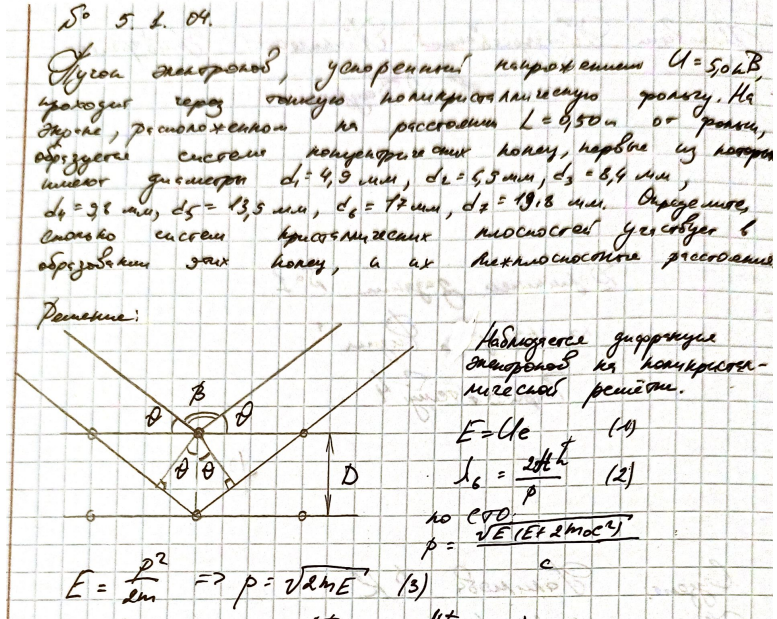 № 5.1.04.
Пучок электронов, ускоренный напряжением U = 5,0 кВ,
проходит через тонкую поликристаллическую фольгу. На
экране, расположенном на расстоянии L = 0,50 м от фольги,
образуется система концентрических колец, первые из которых
имеют диаметры d₁ = 4,9 мм, d₂ = 5,9 мм, d₃ = 8,4 мм,
d₄ = 9,8 мм, d₅ = 13,9 мм, d₆ = 17 мм, d₇ = 19,8 мм. Определите,
сколько систем кристаллических плоскостей участвует в
образовании этих колец, и их межплоскостные расстояния
Решение:
Наблюдается дифракция
электронов на поликристал-
лической решётке.
θ B θ
θ θ
D
E = Ue (1)
λ_б = 2πħ/p (2)
по СТО
p = √(E(E+2m₀c²))/c
E = p²/2m => p = √(2mE) (3)